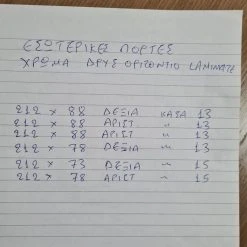 ΕΣΩΤΕΡΙΚΕΣ ΠΟΡΤΕΣ
ΧΡΩΜΑ ΔΡΥΣ ΟΡΙΖΟΝΤΙΟ LAMINATE
212 × 88 ΔΕΞΙΑ ΚΑΣΑ 13
212 × 88 ΑΡΙΣΤ " 13
212 × 88 ΑΡΙΣΤ " 13
212 × 78 ΔΕΞΙΑ " 13
212 × 73 ΔΕΞΙΑ " 15
212 × 78 ΑΡΙΣΤ " 15